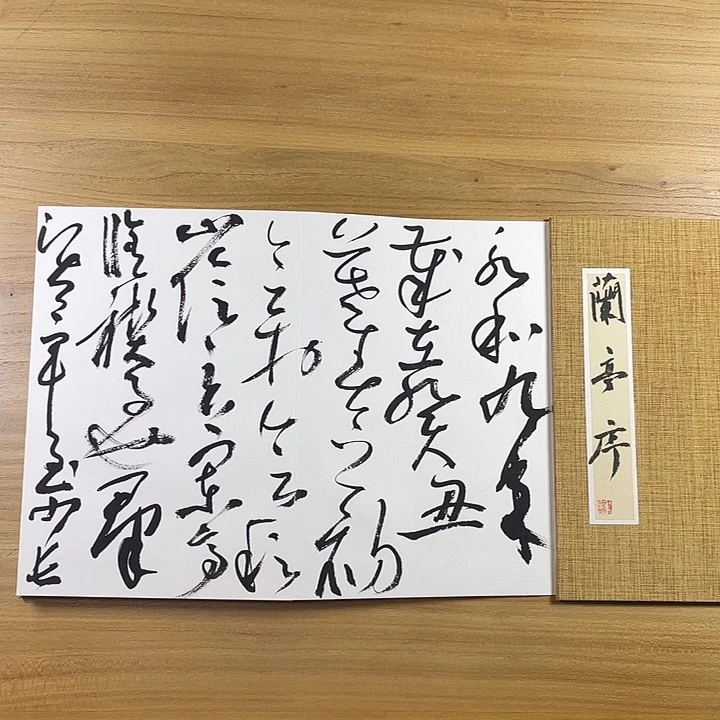 蘭亭序
永和九年
歲在癸丑
暮春之初
會于會稽
山陰之蘭亭
脩禊事也羣
賢畢至少長